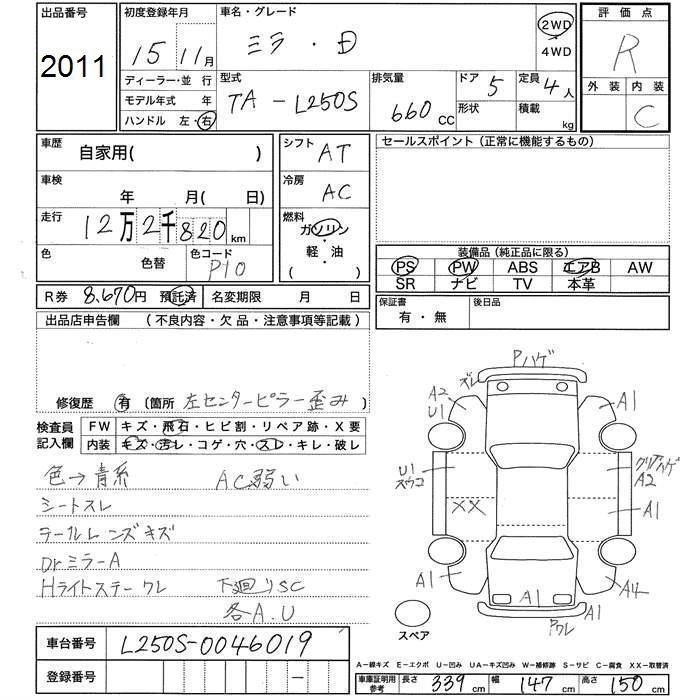 出品番号
2011
初度登録年月
15 11月
ディーラー・並 行
モデル年式 年
ハンドル 左・右
車名・グレード
ミラ・D
2WD
4WD
型式
TA-L250S
排気量
660 CC
ドア 5
形状
定員 4人
積載 kg
評価点
R
外装 内装
C
車歴
自家用( )
車検
年 月( 日)
走行
12万2千820km
色
色替
色コード
P10
シフト AT
冷房 AC
燃料
ガソリン
・
軽・油
( )
セールスポイント (正常に機能するもの)
装備品 (純正品に限る)
PS PW ABS エアB AW
SR ナビ TV 本革
R券 8,670円 預託済 名変期限 月 日
保証書
有・無
後日品
出品店申告欄 (不良内容・欠品・注意事項等記載)
修復歴 有 (箇所 左センターピラー歪み)
検査員
記入欄
FW キズ・飛石・ヒビ割・リペア跡・X要
内装 キズ・汚レ・コゲ・穴・スレ・キレ・破レ
色→青系 AC弱い
シートスレ
テールレンズキズ
Drミラー A
Hライトステーワレ 下廻りSC
各A.U
Pハゲ
ズレ
A2
U1
A1
U1
スウコ
クリアハゲ
A2
XX
A1
A1
A4
A1
Pワレ
スペア
車台番号 L250S-0046019
登録番号 －
A－線キズ E－エクボ U－凹み UA－キズ凹み W－補修跡 S－サビ C－腐食 XX－取替済
車庫証明用
参考
長さ 339cm 幅 147cm 高さ 150cm